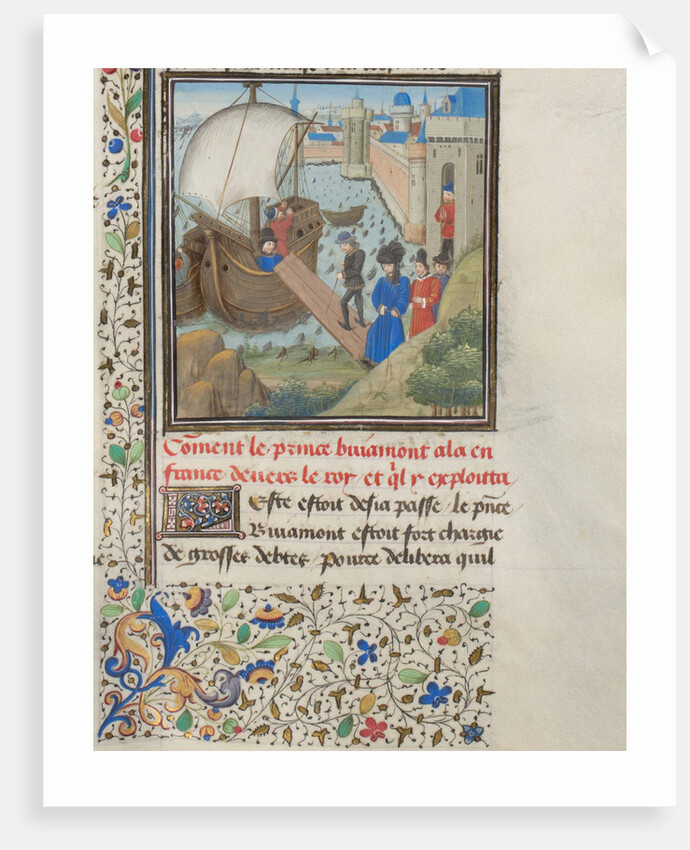 Coment le prince buiamont ala en
france devers le roy et ql y exploitta
Este estoit desia passe le pnce
Buiamont estoit fort chargie
de grosses debtes pource delibera quil